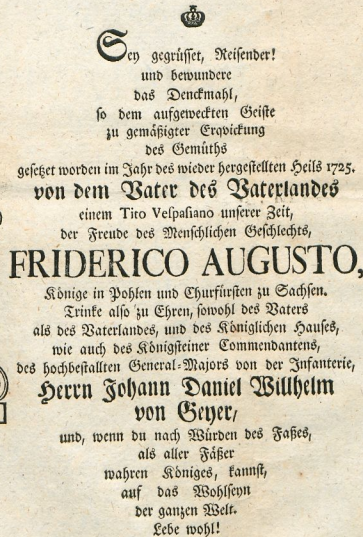 Sey gegrüsset, Reisender!
und bewundere
das Denckmahl,
so dem aufgeweckten Geiste
zu gemäßigter Erqvickung
des Gemüths
gesetzet worden im Jahr des wieder hergestellten Heils 1725.
von dem Vater des Vaterlandes
einem Tito Vespasiano unserer Zeit,
der Freude des Menschlichen Geschlechts,
FRIDERICO AUGUSTO,
Könige in Pohlen und Churfürsten zu Sachsen.
Trinke also zu Ehren, sowohl des Vaters
als des Vaterlandes, und des Königlichen Hauses,
wie auch des Königsteiner Commendantens,
des hochbestallten General-Majors von der Infanterie,
Herrn Johann Daniel Willhelm
von Geyer,
und, wenn du nach Würden des Faßes,
als aller Fäßer
wahren Königes, kannst,
auf das Wohlseyn
der ganzen Welt.
Lebe wohl!